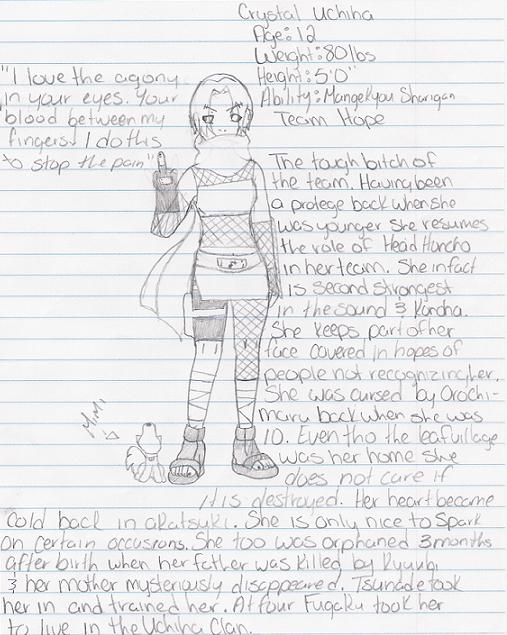 Crystal Uchiha
Age: 12
Weight: 80 lbs
Height: 5'0"
Ability: Mangekyou Sharigan
Team Hope
"I love the agony
in your eyes. Your
blood between my
fingers. I do this
to stop the pain"
The tough bitch of
the team. Having been
a protege back when she
was younger she resumes
the role of Head Huncho
in her team. She infact
is second strongest
in the sound & Konoha.
She keeps part of her
face covered in hopes of
people not recognizing her.
She was cursed by Orochi-
maru back when she was
10. Even tho the leaf village
was her home she
does not care if
it is destroyed. Her heart became
cold back in akatsuki. She is only nice to Spark
on certain occusions. She too was orphaned 3 months
after birth when her father was killed by Kyuubi
& her mother mysteriously disappeared. Tsunade took
her in and trained her. At four Fugaku took her
to live in the Uchiha Clan.